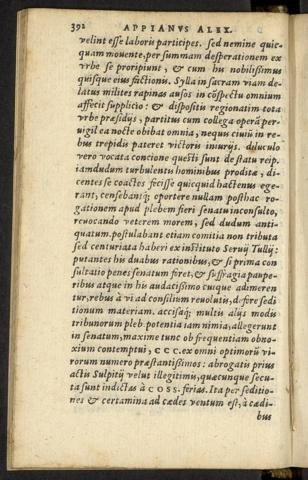 392 APPIANVS ALEX.
velint esse laboris participes. sed nemine quic-
quam mouente, per summam desperationem ex
vrbe se proripiunt, & cum his nobilissimus
quisque eius factionis. Sylla in sacram viam de-
latus milites rapinas ausos in cōspectu omnium
affecit supplicio: & dispositis regionatim tota
vrbe præsidijs, partitus cum collega operā per-
uigil ea nocte obibat omnia, nequs ciuiū in re-
bus trepidis pateret victoris iniurijs. diluculo
vero vocata concione questi sunt de statu reip.
iamdudum turbulentis hominibus prodita, di-
centes se coactos fecisse quicquid hactenus ege-
rant, censebantq; oportere nullam posthac ro-
gationem apud plebem fieri senatu inconsulto,
reuocando veterem morem, sed dudum anti-
quatum. postulabant etiam comitia non tributa
sed centuriata haberi ex instituto Seruij Tullij:
putantes his duabus rationibus, & si prima con
sultatio penes senatum foret, & suffragia paupe-
ribus atque in his audacissimo cuique adimeren
tur, rebus à vi ad consilium reuolutis, defore sedi
tionum materiam. accisaq; multis alijs modis
tribunorum pleb. potentia iam nimia, allegerunt
in senatum, maxime tunc ob frequentiam obno-
xium contemptui, CCC. ex omni optimorū vi-
rorum numero præstantissimos: abrogatis prius
actis Sulpitij velut illegitimis, quæcunque secu-
ta sunt indictas à COSS. ferias. Ita per seditio-
nes & certamina ad cædes ventum est, à cædi-
bus